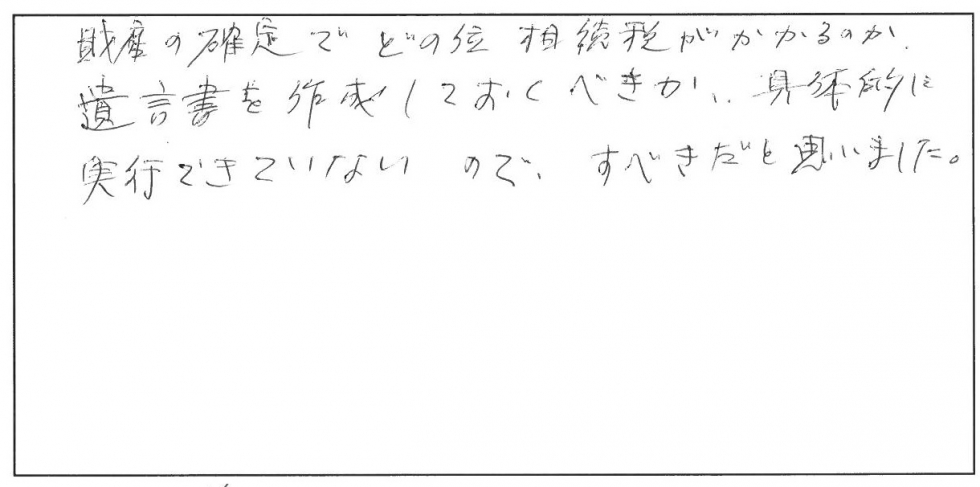 財産の確定でどの位 相続税がかかるのか、
遺言書を作成しておくべきか、、具体的に
実行できていない ので、 すべきだと思いました。